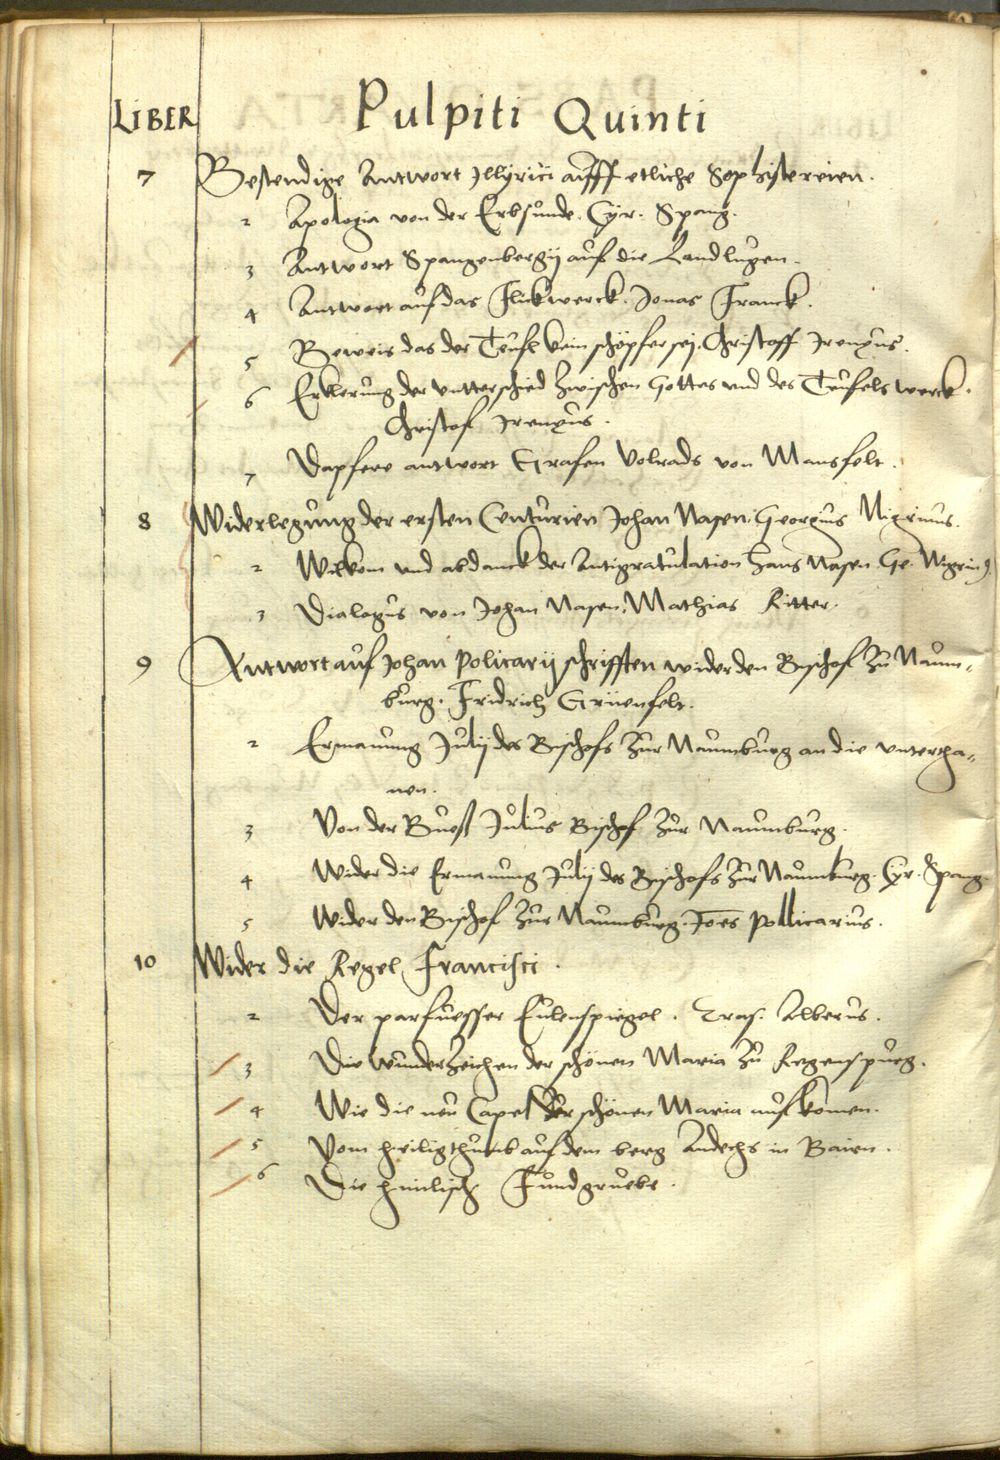 LIBER Pulpiti Quinti
7 Bestendige Antwort Illyrici aufff etliche Sophistereien.
2 Apologia von der Erbsunde. Cyr. Spang.
3 Antwort Spangenbergij auf die Landlugen.
4 Antwort auf das Flickwerck. Jonas Franck.
5 Beweis das der Teufl kein schöpfer sej. Christoff Irenęus.
6 Erklerung der untterschied zwischen Gottes und des Teufels werck.
Christof Irenęus.
7 Dapfere antwort Grafen Volrads von Mansfelt.
8 Widerlegung der ersten Centurien Johan Nasen. Georgius Nigrinus.
2 Wilkom und abdanck der Antigratulation Hans Nasen Ge. Nigrin9.
3 Dialogus von Johan Nasen. Mathias Ritter.
9 Antwort auf Johan Policarij schrifften wider den Bischof zu Naum-
burg. Fridrich Grüenfelt.
2 Ermanung Julij des Bischofs zur Naumburg an die untertha-
nen.
3 Von der Buess Julius Bischof zur Naumburg.
4 Wider die Ermanung Julij des Bischofs zur Naumburg. Cyr. Spang
5 Wider den Bischof zur Naumburg. Joes Pollicarius.
10 Wider die Regel Francisci.
2 Der parfuesser Eulenspiegel. Eras. Alberus.
3 Die wunderzeichen der schönen Maria zu Regenspurg.
4 Wie die neu Capel der schönen Maria aufkomen.
5 Vom heiligthumb auf dem berg Andechs in Baiern.
6 Die himlisch Fundgruebe.